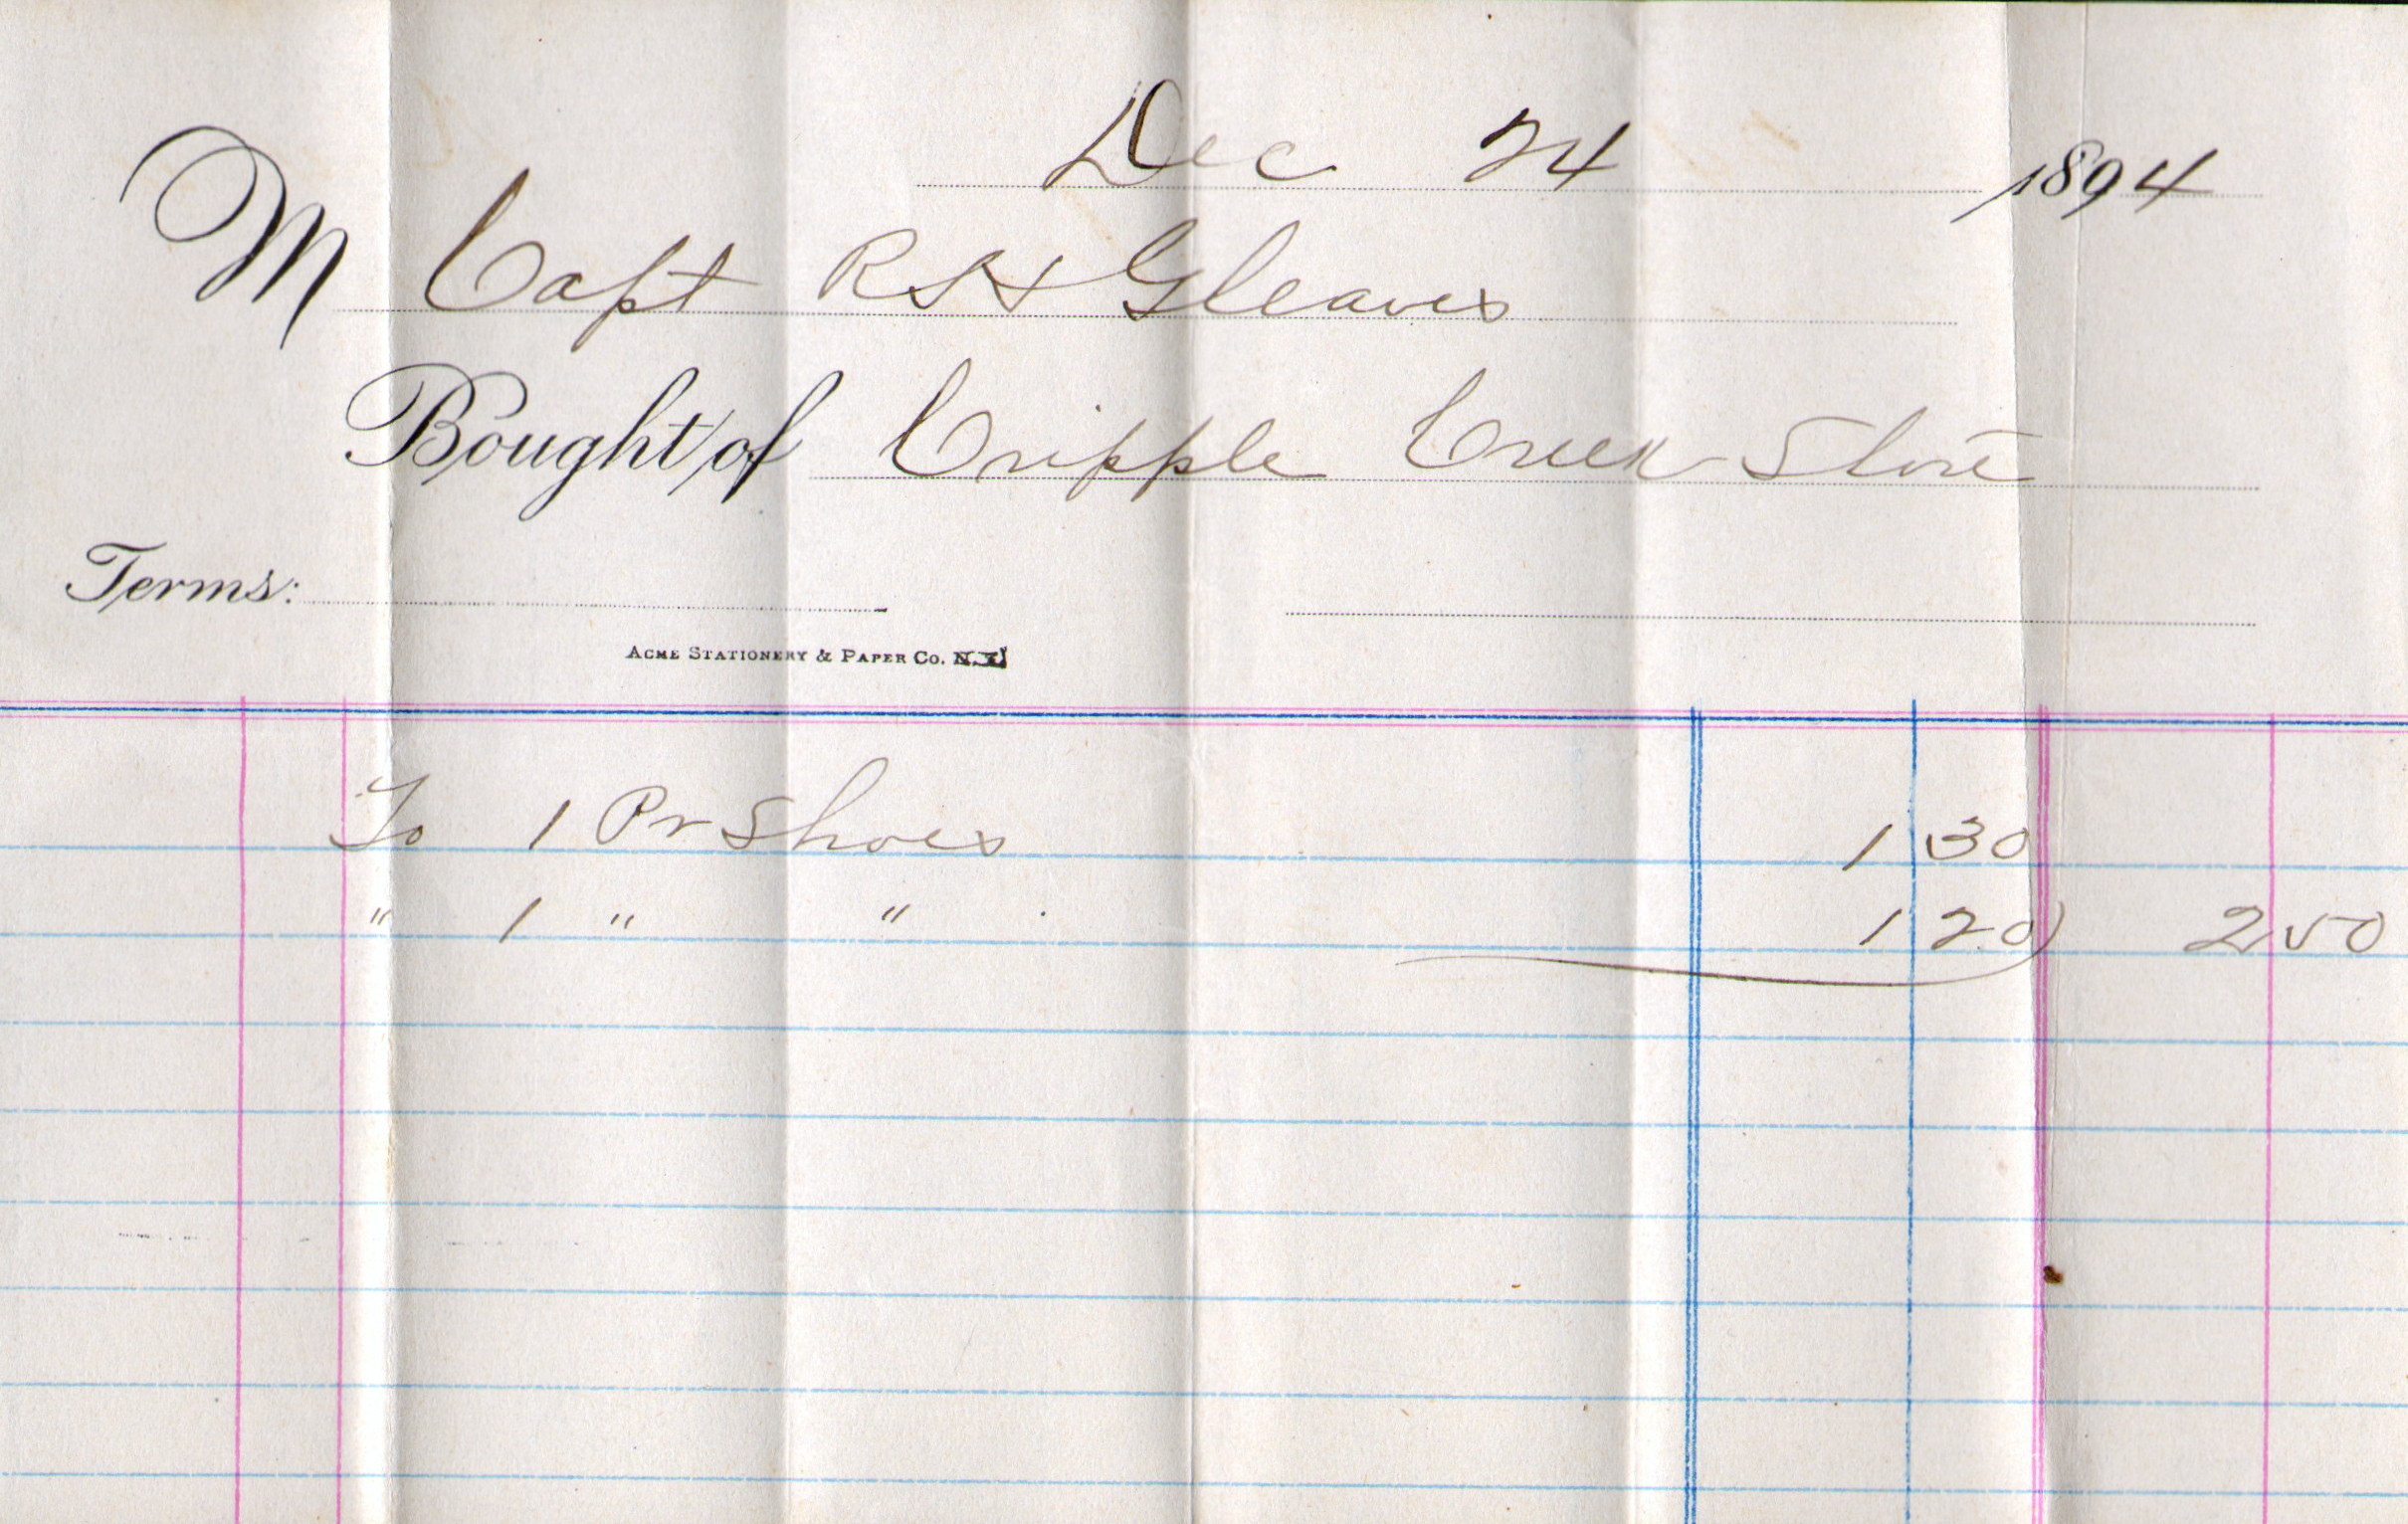 Dec 24 1894
M Capt R S H Gleaves
Bought of Cripple Creek Store
Terms:
ACME STATIONERY & PAPER CO. N.Y.
To 1 Pr Shoes 1 30
" 1 " " 1 20 2 50